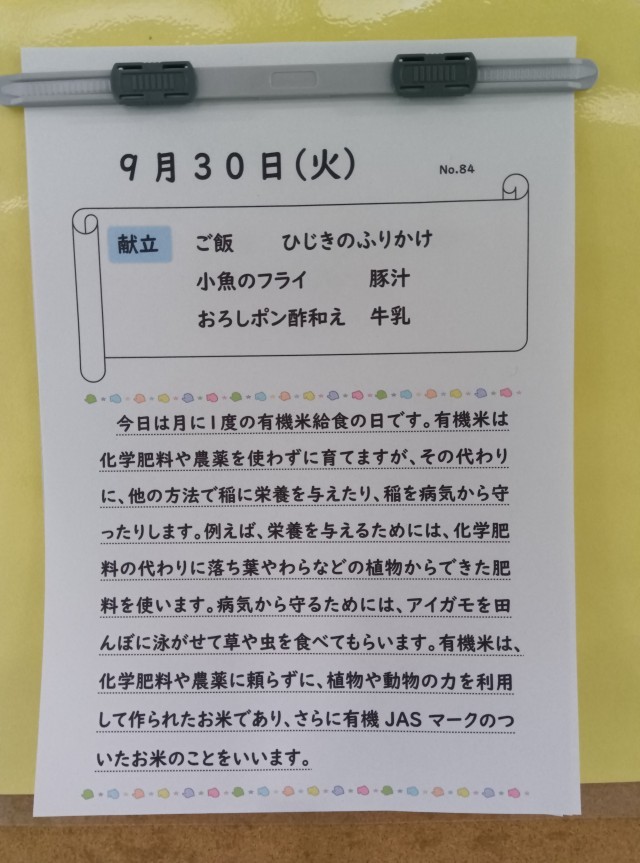 9月30日(火)
No.84
献立 ご飯 ひじきのふりかけ
小魚のフライ 豚汁
おろしポン酢和え 牛乳
今日は月に1度の有機米給食の日です。有機米は
化学肥料や農薬を使わずに育てますが、その代わり
に、他の方法で稲に栄養を与えたり、稲を病気から守
ったりします。例えば、栄養を与えるためには、化学肥
料の代わりに落ち葉やわらなどの植物からできた肥
料を使います。病気から守るためには、アイガモを田
んぼに泳がせて草や虫を食べてもらいます。有機米は、
化学肥料や農薬に頼らずに、植物や動物の力を利用
して作られたお米であり、さらに有機 JAS マークのつ
いたお米のことをいいます。